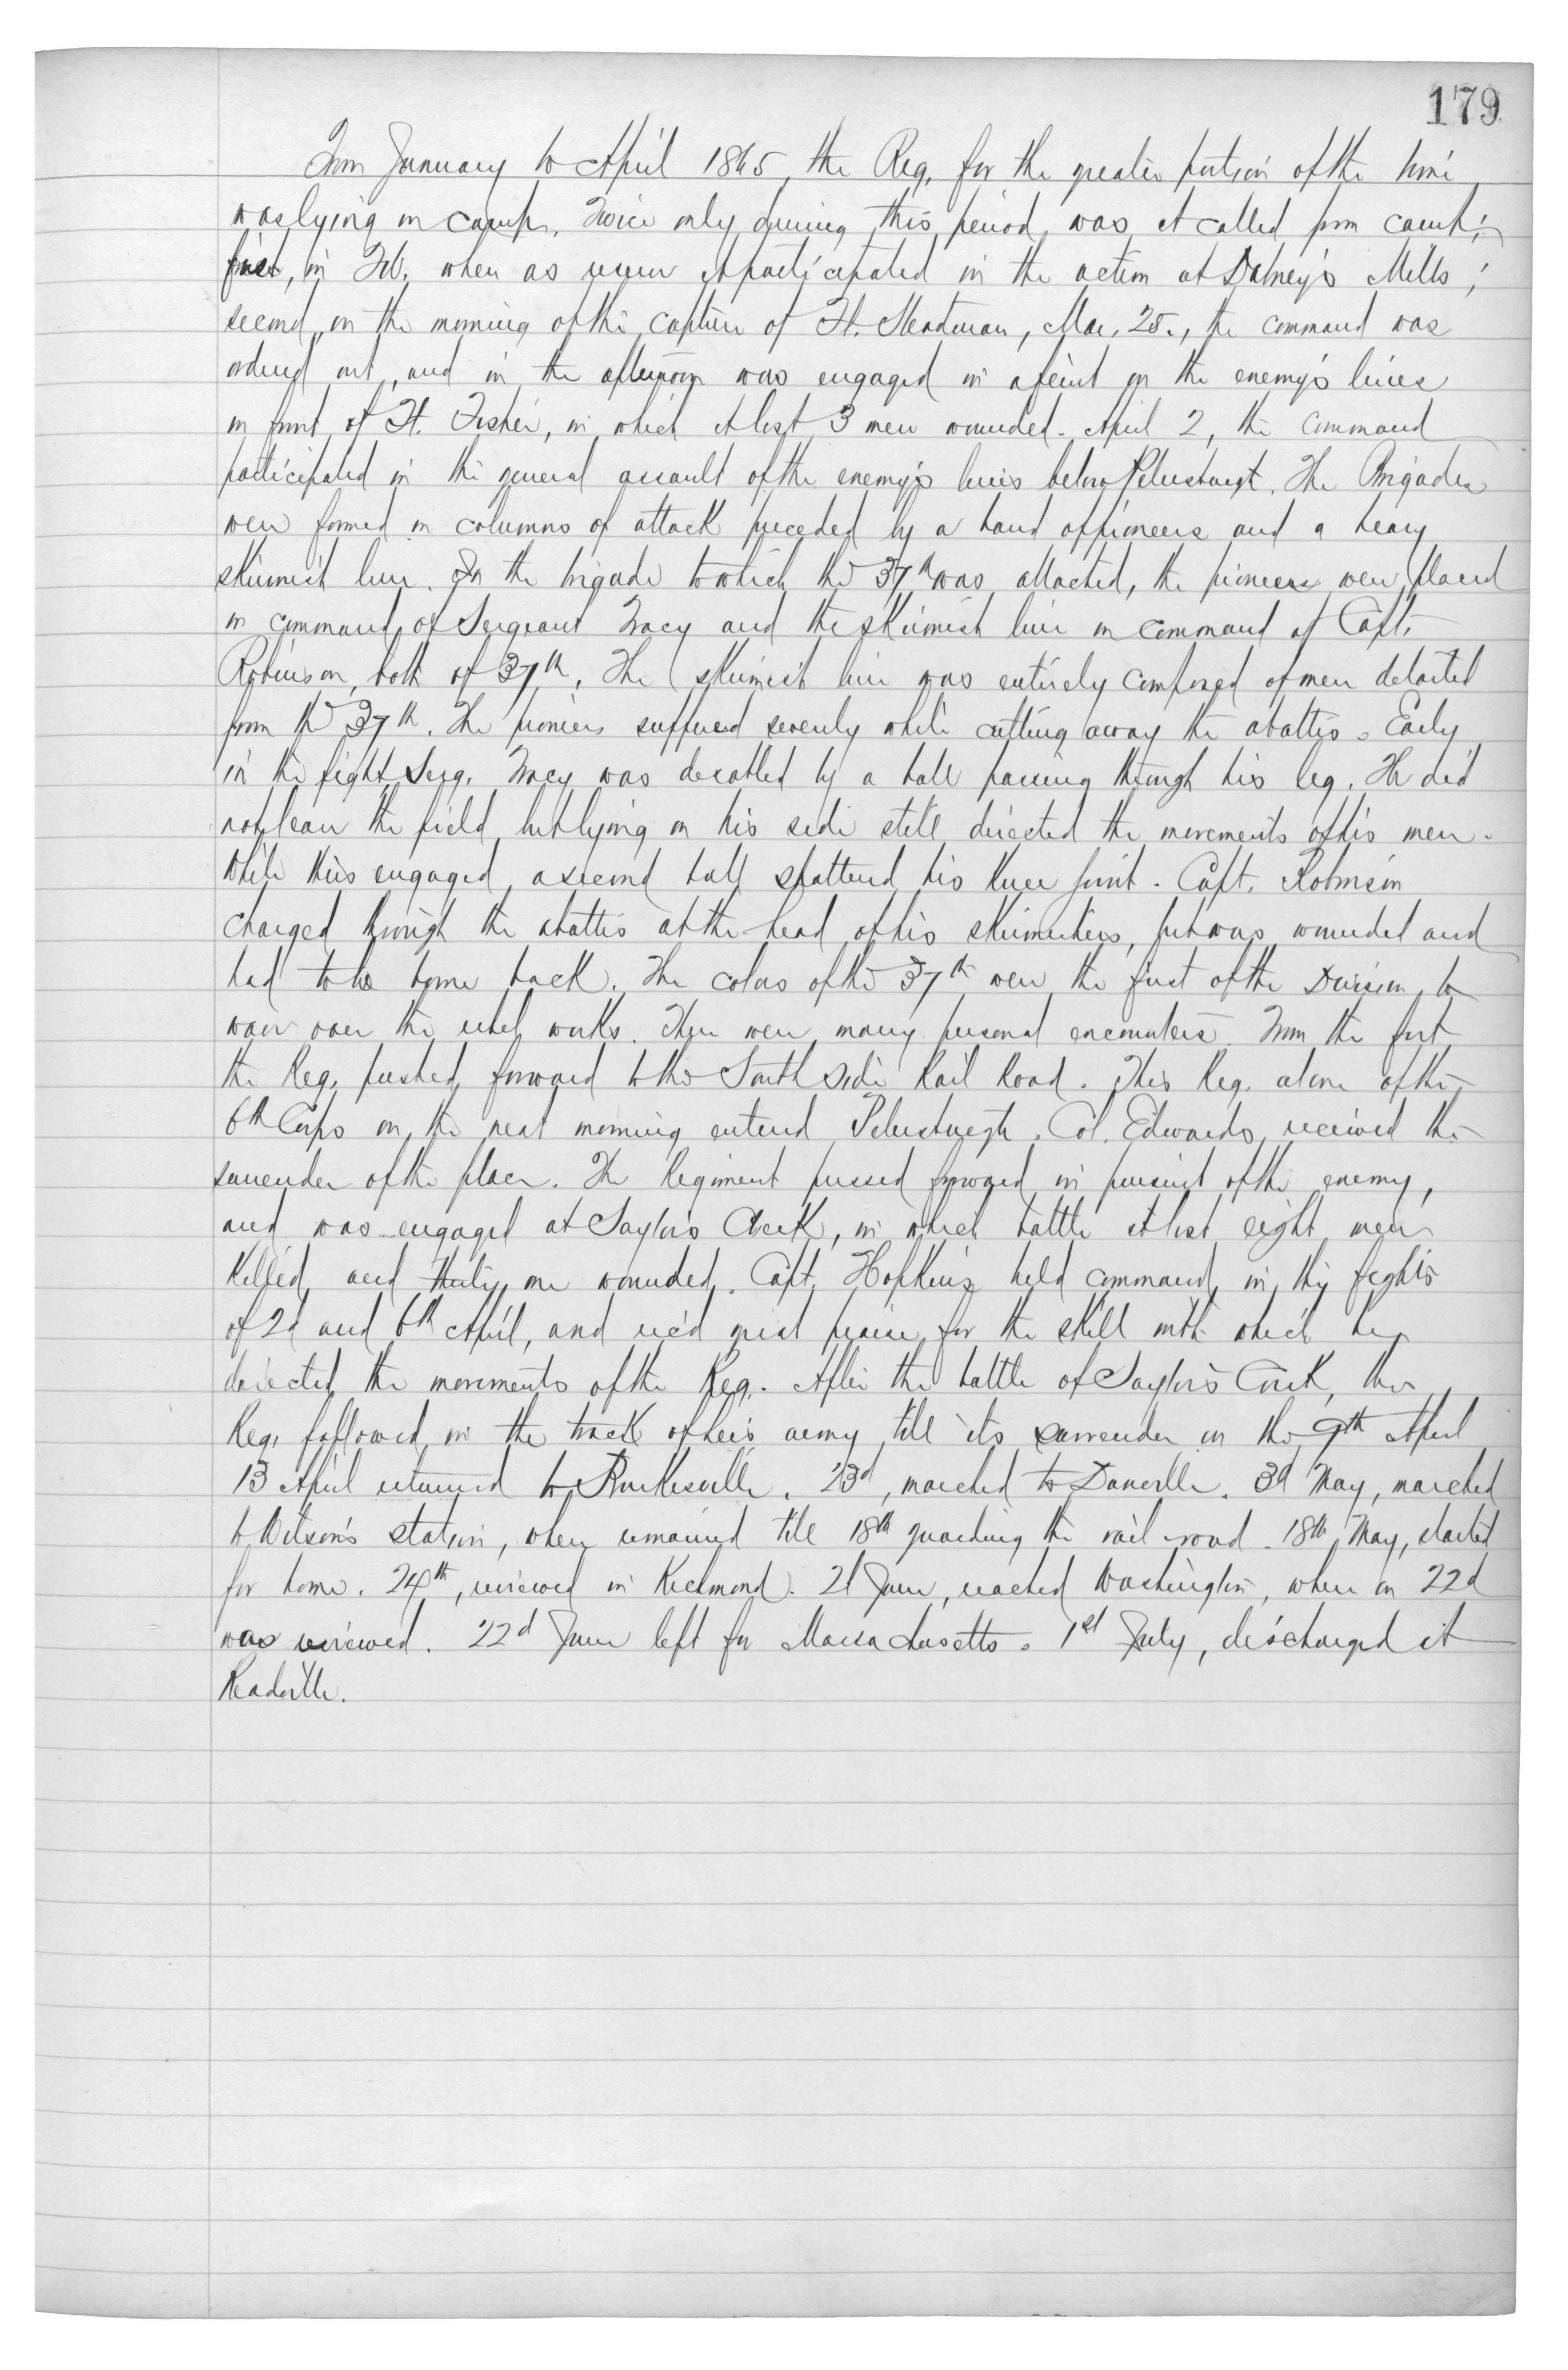 179
From January to April 1865, the Reg. for the greater portion of the time
was lying in camp. Twice only during this period, was it called from camp;
first, in Feb. when as reserve it participated in the action at Dabney's Mills;
second, on the morning of the capture of Ft. Steadman, Mar. 25., the command was
ordered out, and in the afternoon was engaged in a feint on the enemy's lines
in front of Ft. Fisher, in which it lost 3 men wounded. April 2, the command
participated in the general assault of the enemy's lines before Petersburgh. The Brigades
were formed in columns of attack preceded by a band of pioneers and a heavy
skirmish line. In the brigade to which the 37th was attached, the pioneers were placed
in command of Sergeant Tracy and the skirmish line in command of Capt.
Robinson, both of 37th. The skirmish line was entirely composed of men detailed
from the 37th. The pioneers suffered severely while cutting away the abattis. Early
in the fight Serg. Tracy was disabled by a ball passing through his leg. He did
not leave the field, but lying on his side still directed the movements of his men.
While thus engaged, a second ball shattered his knee joint. Capt. Robinson
charged through the abattis at the head of his skirmishers, but was wounded and
had to be borne back. The colors of the 37th were the first of the Division to
wave over the rebel works. There were many personal encounters. From the fort
the Reg. pushed forward to the South Side Rail Road. This Reg. alone of the
6th Corps on the next morning entered Petersburgh. Col. Edwards received the
surrender of the place. The Regiment pressed forward in pursuit of the enemy,
and was engaged at Saylor's Creek, in which battle it lost eight men
killed, and thirty one wounded. Capt. Hopkins held command in the fights
of 2d and 6th April, and rec'd great praise for the skill with which he
directed the movements of the Reg. After the battle of Saylor's Creek, the
Reg. followed in the track of Lee's army till its surrender on the 9th April
13 April returned to Burkesville. 23d, marched to Danville. 3d May, marched
to Wilson's station, where remained till 18th guarding the rail-road. 18th May, started
for home. 24th, reviewed in Richmond. 2d June, reached Washington, where on 22d
was reviewed. 22d June left for Massachusetts. 1st July, discharged at
Readville.